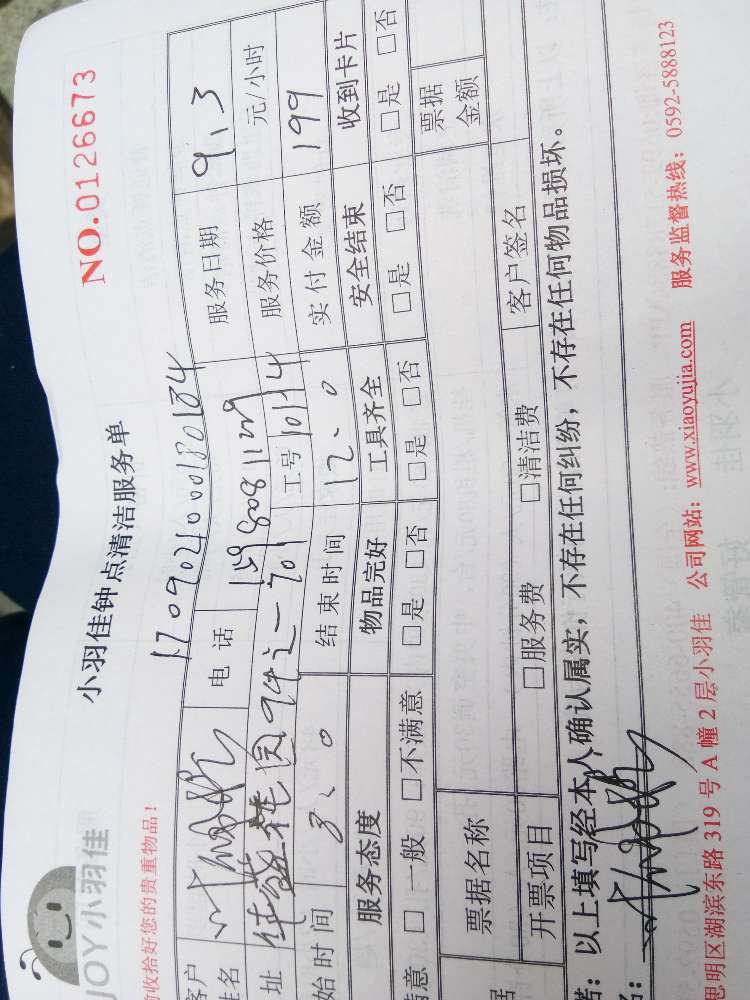 JOY小羽佳
小羽佳钟点清洁服务单
NO.0126673
收拾好您的贵重物品!
1709021000180184
客户姓名 电话 服务日期 9.3
址 华 园 之一701 工号 服务价格 元/小时
始时间 8.0 结束时间 12.0 实付金额 199
服务态度 物品完好 工具齐全 安全结束 收到卡片
满意 □一般 □不满意 □是 □否 □是 □否 □是 □否 □是 □否
票据名称 票据金额
开票项目 □服务费 □清洁费 客户签名
诺:以上填写经本人确认属实,不存在任何纠纷,不存在任何物品损坏。
思明区湖滨东路 319 号 A 幢 2 层小羽佳 公司网站:www.xiaoyujia.com 服务监督热线:0592-5888123